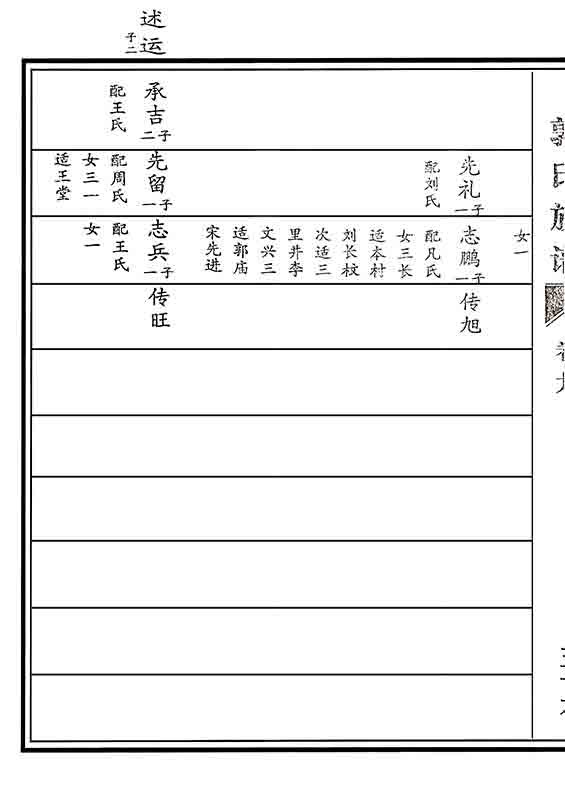 郭氏族谱
卷九
述运
子二
承吉
子二
配王氏
先礼
子一
配刘氏
先留
子一
配周氏
女三一
适王堂
女一
志鹏
子一
配凡氏
女三长
适本村
刘长枝
次适三
里井李
文兴三
适郭庙
宋先进
志兵
子一
配王氏
女一
传旭
传旺